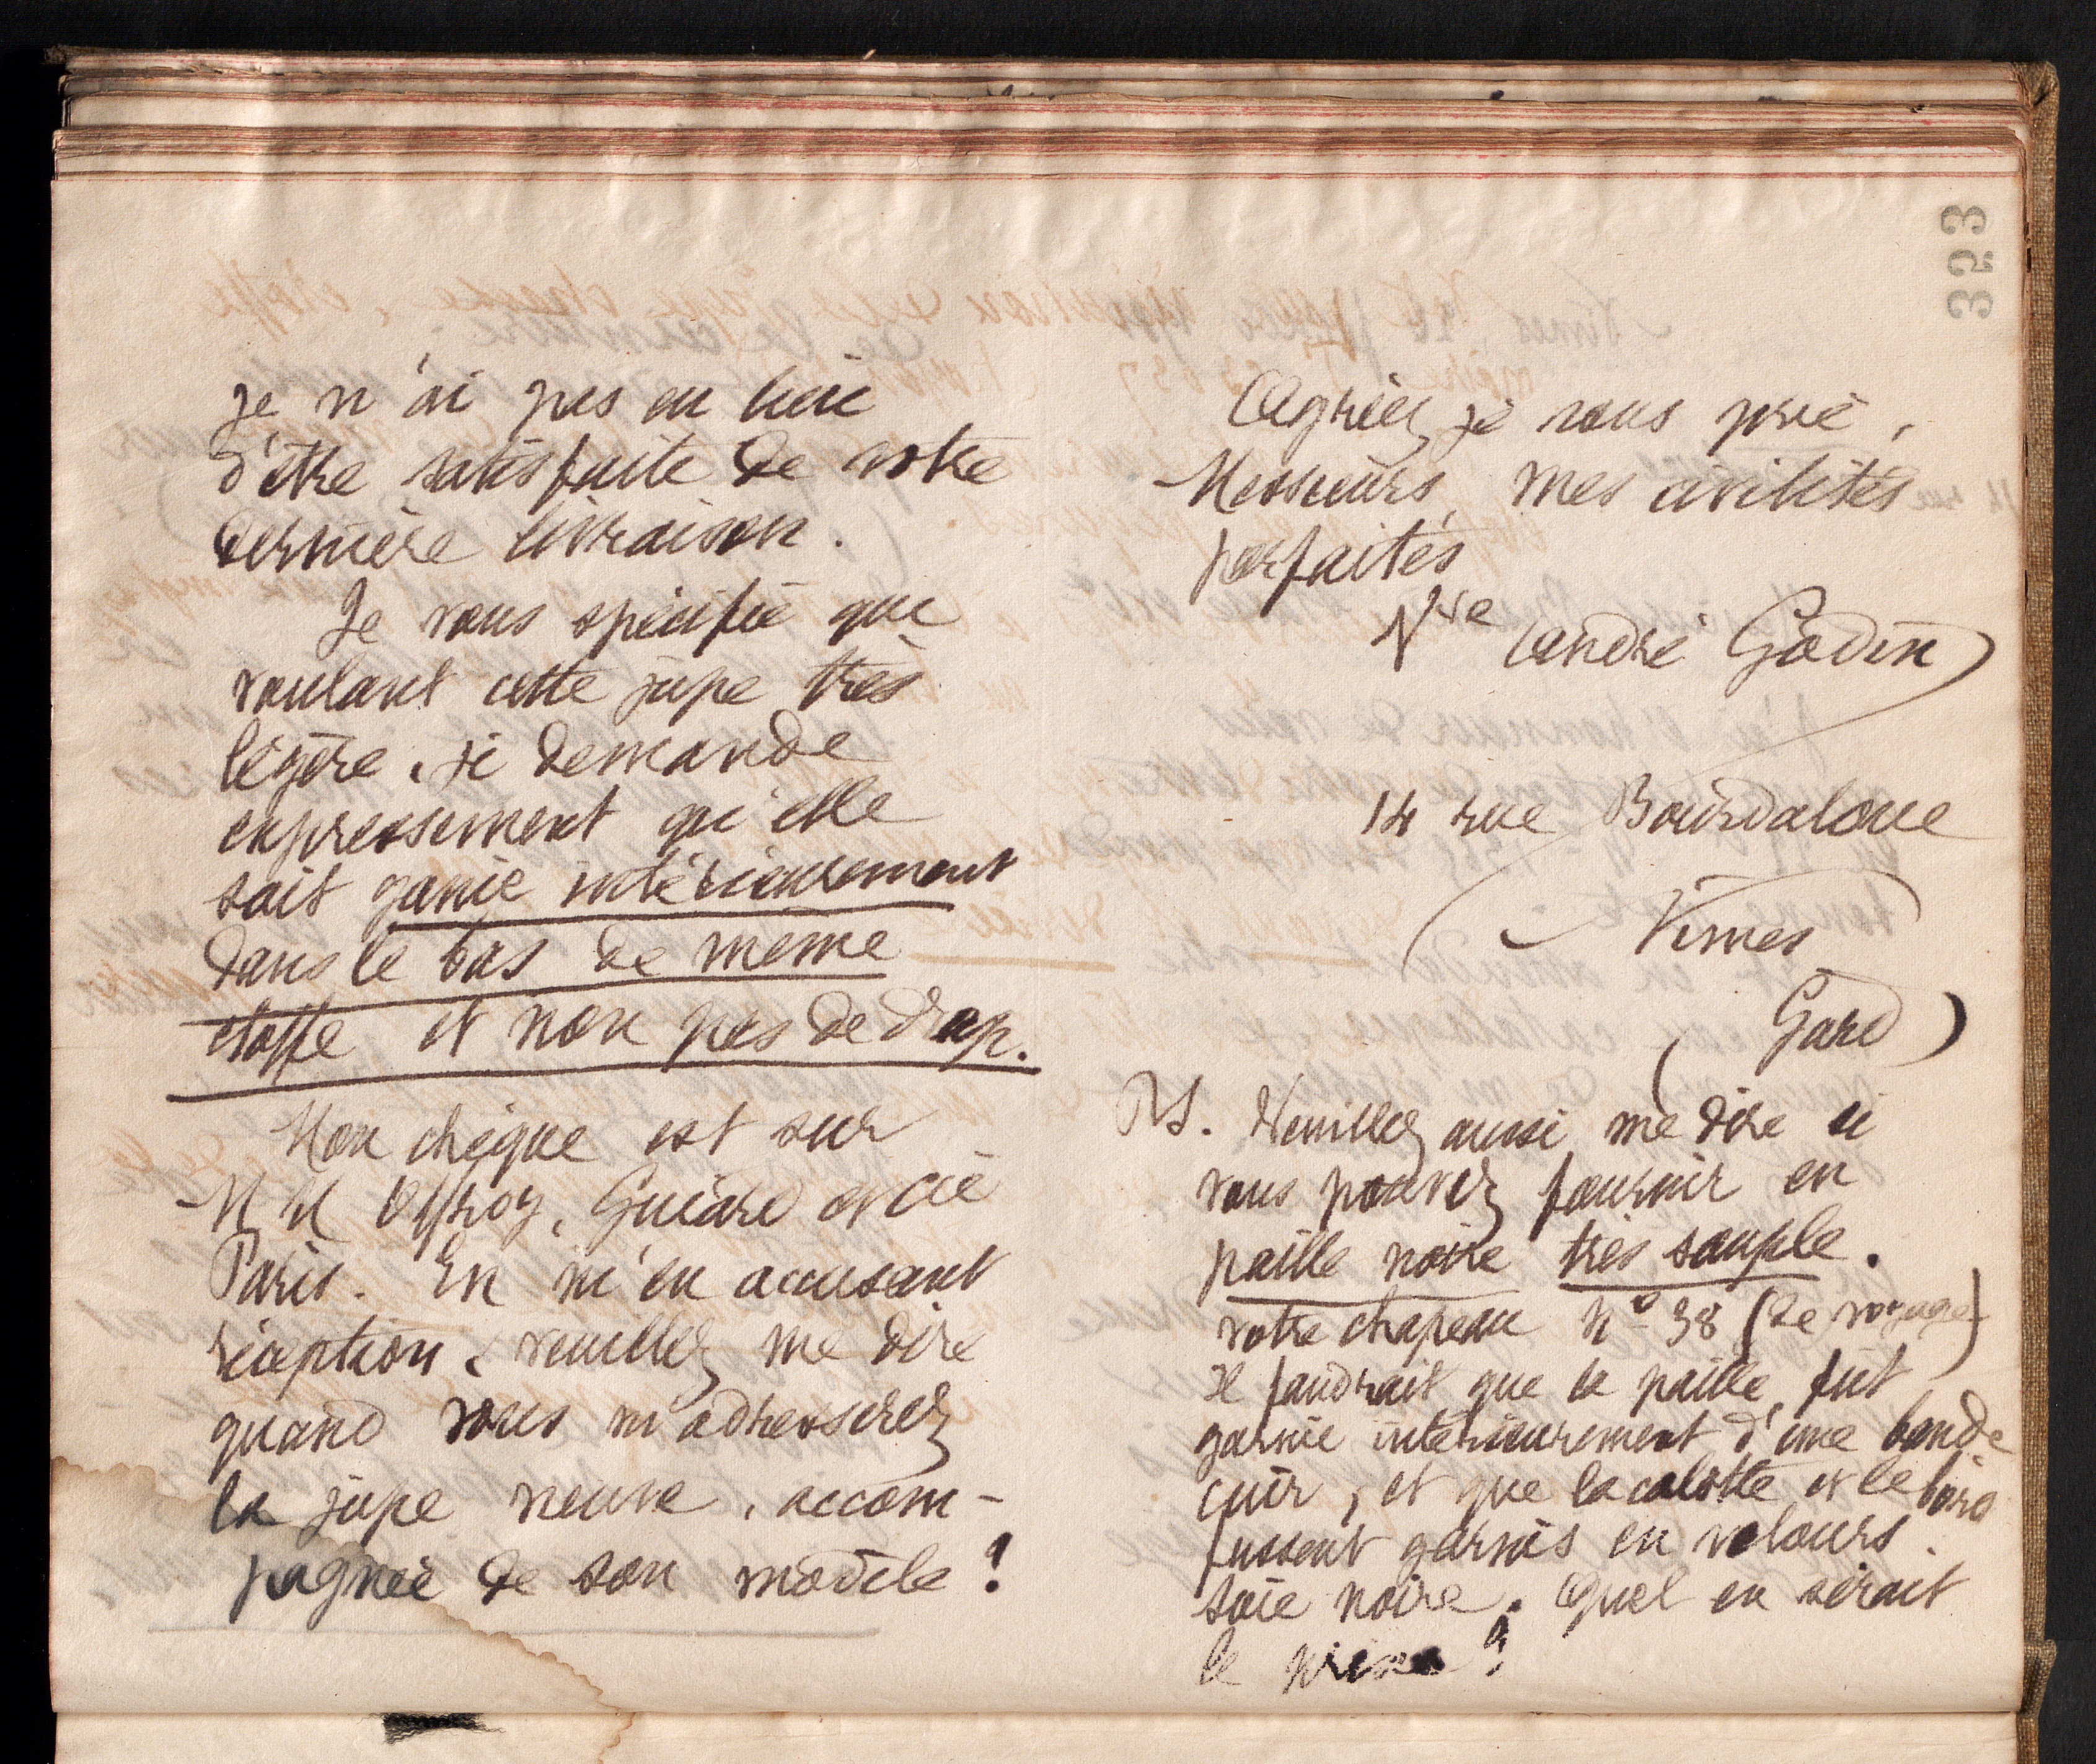 je n'ai pas eu lieu
d'être satisfaite de votre
dernière livraison.
Je vous spécifie que
voulant cette jupe très
légère, je demande
expressément qu'elle
soit garnie intérieurement
dans le bas de même
étoffe et non pas de drap.
Mon chèque est sur
M M Offroy, Guiard et Cie
Paris. En m'en accusant
réception, veuillez me dire
quand vous m'adresserez
la jupe neuve, accom-
pagnée de son modèle?
Agréez je vous prie,
Messieurs, mes civilités
parfaites
Vve André Godin
14 rue Bourdaloue
Nimes
(Gard)
PS. Veuillez aussi me dire si
vous pouvez fournir en
paille noire très souple.
votre chapeau No 38 (de voyage)
Il faudrait que la paille fût
garnie intérieurement d'une bande
cuir, et que la calotte et le bord
fussent garnis en velours
soie noire. Quel en serait
le prix?
353